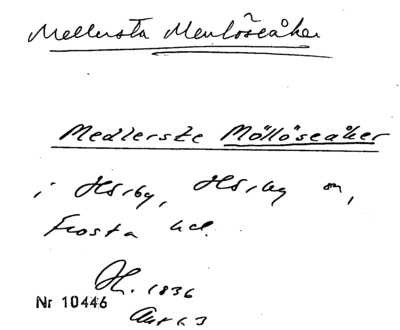 Mellersta Menlöseåker
Medlerste Möllöseåker
i Hörby, Hörby sn,
Frosta hd.
H. 1836
Nr 10446
Akt 63